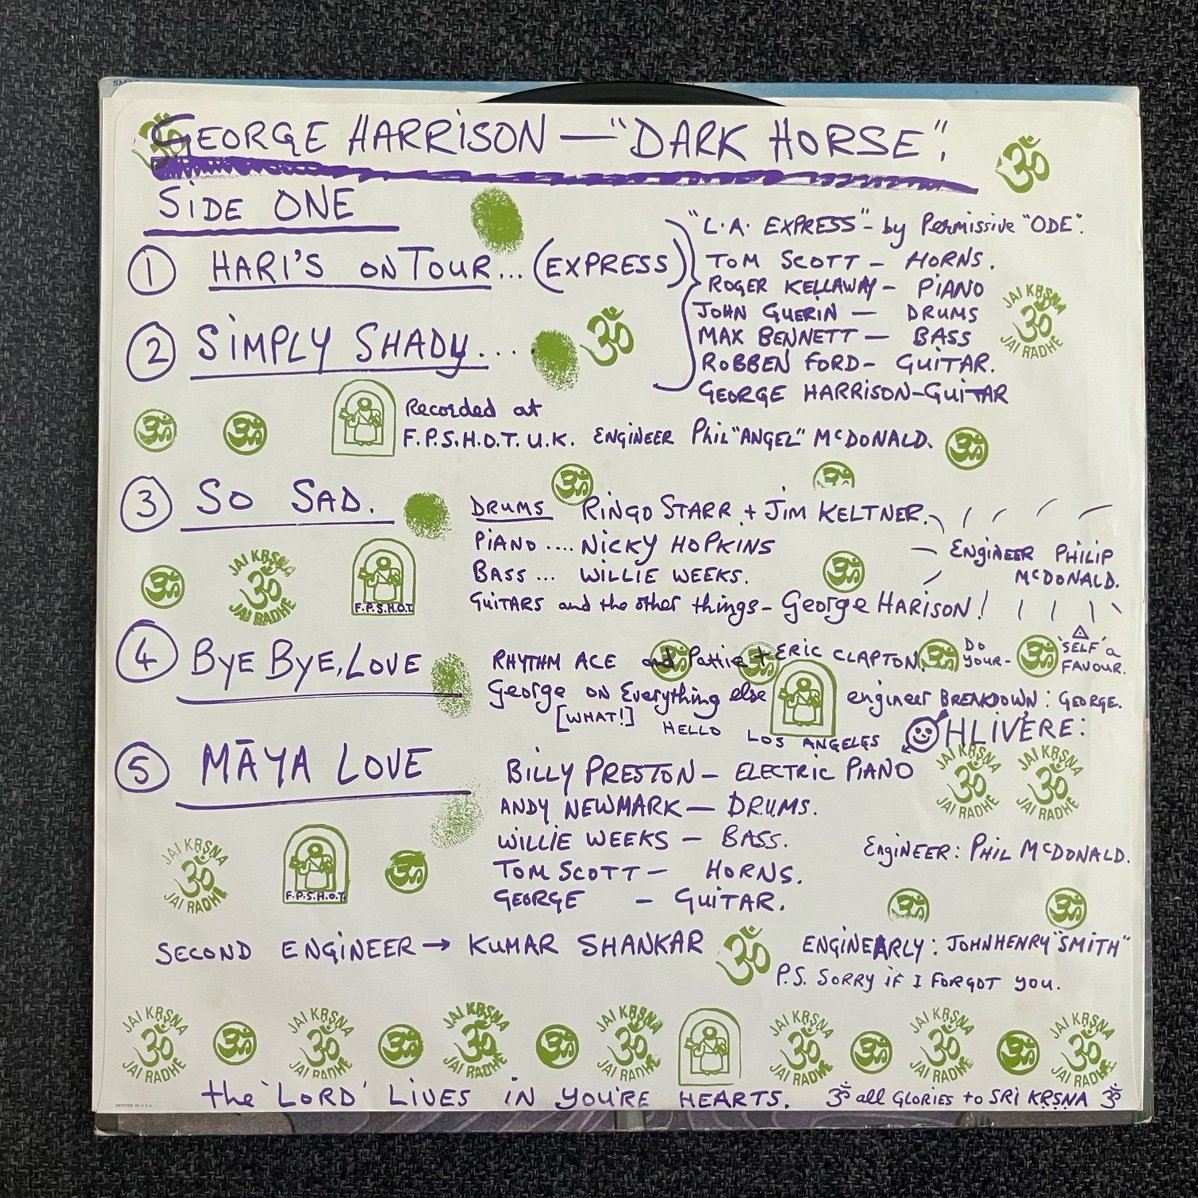 GEORGE HARRISON — "DARK HORSE".
SIDE ONE
① HARI'S ON TOUR... (EXPRESS)
"L.A. EXPRESS" - by Permissive "ODE".
TOM SCOTT - HORNS.
ROGER KELLAWAY - PIANO
JOHN GUERIN - DRUMS
MAX BENNETT - BASS
ROBBEN FORD - GUITAR.
GEORGE HARRISON - GUITAR
ॐ
JAI KRSNA
ॐ
JAI RADHE
② SIMPLY SHADY...
ॐ
Recorded at
F.P.S.H.O.T. U.K. ENGINEER Phil "ANGEL" McDONALD.
③ SO SAD.
DRUMS RINGO STARR + JIM KELTNER.
PIANO .... NICKY HOPKINS
BASS ... WILLIE WEEKS.
GUITARS and the other things - George HARISON!
ENGINEER PHILIP
McDONALD.
JAI KRSNA
ॐ
JAI RADHE
F.P.S.H.O.T.
④ BYE BYE, LOVE
RHYTHM ACE and Pattie + ERIC CLAPTON.
DO YOUR-
'SELF' a
FAVOUR.
George ON Everything else
engineer BREAKDOWN: GEORGE.
[WHAT!] HELLO LOS ANGELES
OHLIVERE:
⑤ MĀYA LOVE
BILLY PRESTON - ELECTRIC PIANO
ANDY NEWMARK - DRUMS.
WILLIE WEEKS - BASS.
TOM SCOTT - HORNS.
GEORGE - GUITAR.
JAI KRSNA
ॐ
JAI RADHE
JAI KRSNA
ॐ
JAI RADHE
ENGINEER: PHIL McDONALD.
JAI KRSNA
ॐ
JAI RADHE
F.P.S.H.O.T.
SECOND ENGINEER → KUMAR SHANKAR ॐ
ENGINEARLY: JOHNHENRY "SMITH"
P.S. SORRY IF I FORGOT YOU.
JAI KRSNA ॐ JAI RADHE
JAI KRSNA ॐ JAI RADHE
JAI KRSNA ॐ JAI RADHE
JAI KRSNA ॐ JAI RADHE
JAI KRSNA ॐ JAI RADHE
JAI KRSNA ॐ JAI RADHE
JAI KRSNA ॐ JAI RADHE
the 'LORD' LIVES IN YOU'RE HEARTS. ॐ all GLORIES to SRI KRSNA ॐ
PRINTED IN U.S.A.